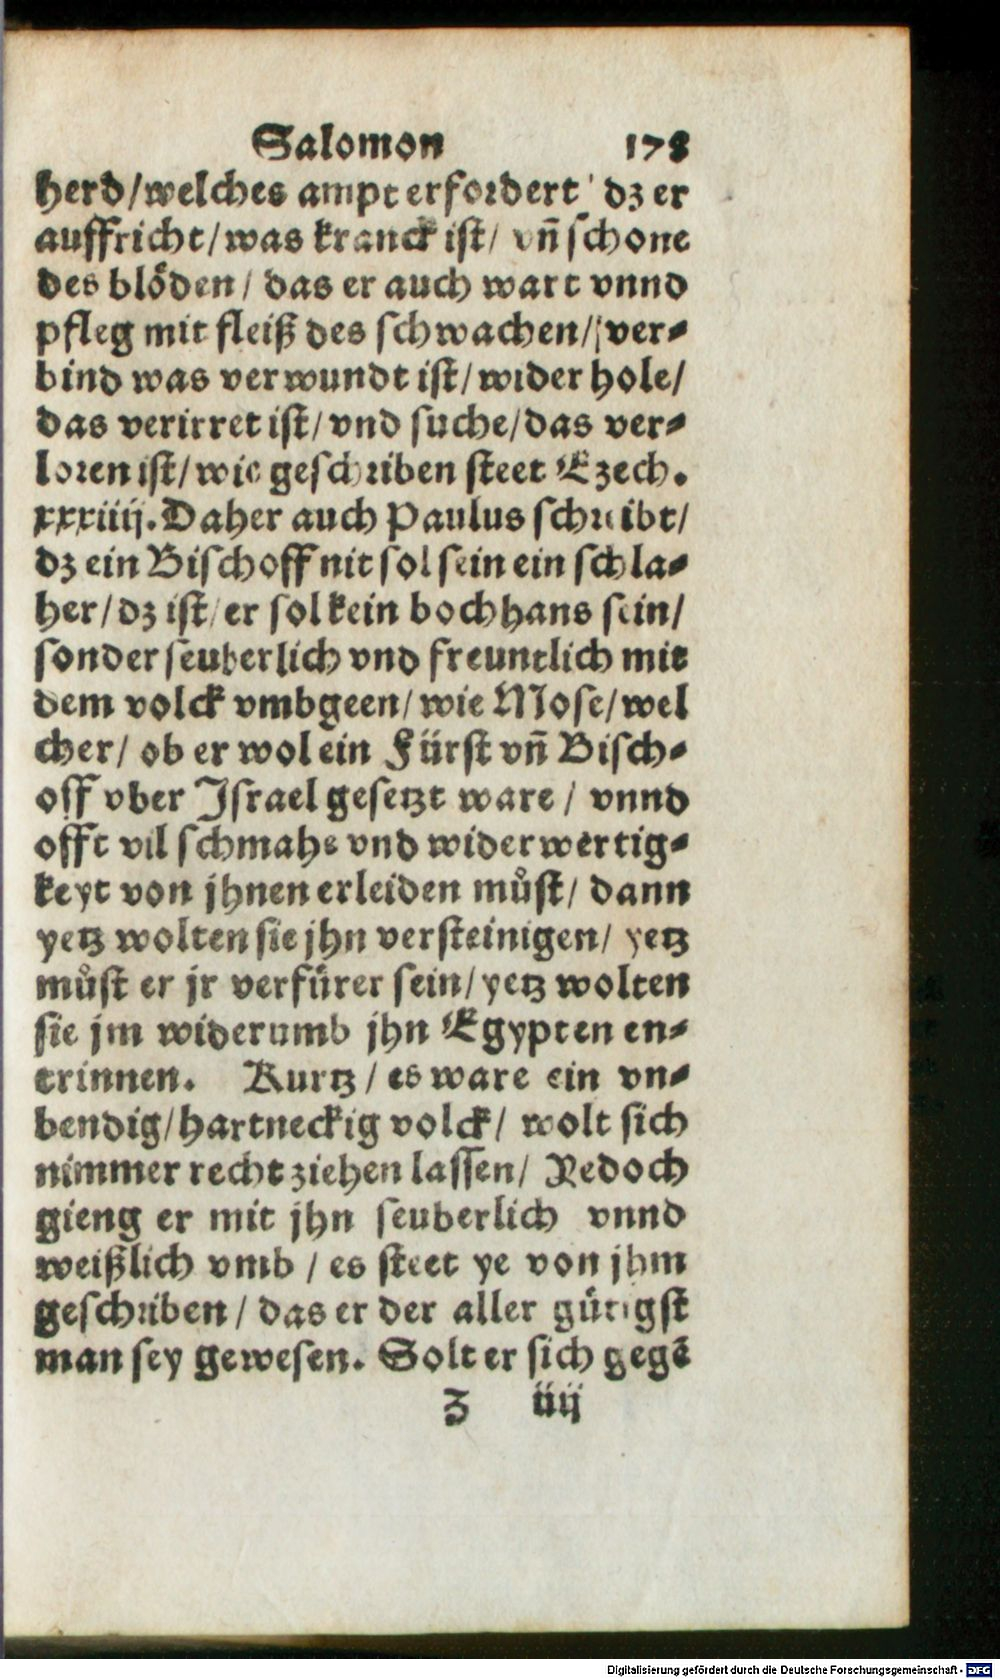 Salomon 178
herd/welches ampt erfordert dz er
auffricht/was kranck ist/ vñ schone
des blöden/ das er auch wart vnnd
pfleg mit fleiß des schwachen/ver⸗
bind was verwundt ist/wider hole/
das verirret ist/vnd suche/das ver⸗
loren ist/wie geschriben steet Ezech.
xxxiiij. Daher auch Paulus schreibt/
dz ein Bischoff nit sol sein ein schla⸗
her/dz ist/er sol kein bochhans sein/
sonder seuberlich vnd freuntlich mit
dem volck vmbgeen/wie Mose/wel
cher/ ob er wol ein Fürst vñ Bisch⸗
off vber Israel gesetzt ware/ vnnd
offt vil schmahe vnd widerwertig⸗
keyt von jhnen erleiden můst/ dann
yetz wolten sie jhn versteinigen/ yetz
můst er jr verfürer sein/yetz wolten
sie jm widerumb jhn Egypten en⸗
trinnen. Kurtz/es ware ein vn⸗
bendig/hartneckig volck/ wolt sich
nimmer recht ziehen lassen/ Yedoch
gieng er mit jhn seuberlich vnnd
weißlich vmb/es steet ye von jhm
geschriben/das er der aller gütigst
man sey gewesen. Solt er sich gegẽ
Z iiij
Digitalisierung gefördert durch die Deutsche Forschungsgemeinschaft - DFG